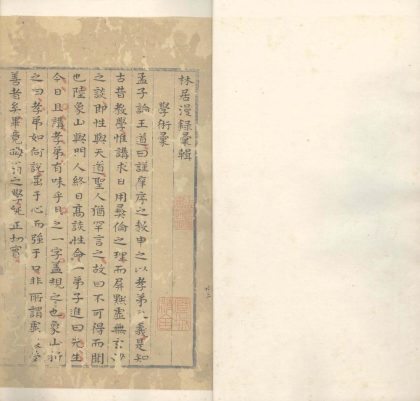 林居漫錄彙輯
學術彙
孟子論王道曰謹庠序之教申之以孝弟之義是知
古昔教學惟講求日用彝倫之理而屏黜虛無
之談即性與天道聖人猶罕言之故曰不可得而聞
也陸象山與門人終日高談性命一弟子進曰先生
今日且講孝弟有味乎且之一字蓋規之也象山
之曰孝弟如何說出于心而強于口非所謂
善者矣畢竟之學 正切實